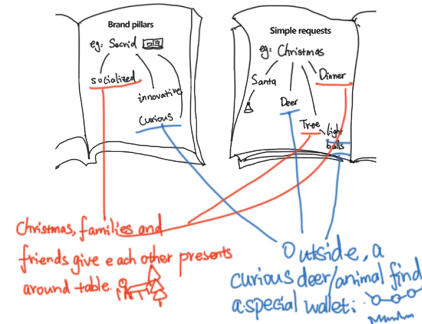 Brand pillars
eg: Secrid
socialized
innovative
Curious
Simple requests
eg: Christmas
Santa
Deer
Tree
Dinner
light
balls
Christmas, families and
friends give each other presents
around table.
Outside, a
curious deer/animal find
a special wallet: